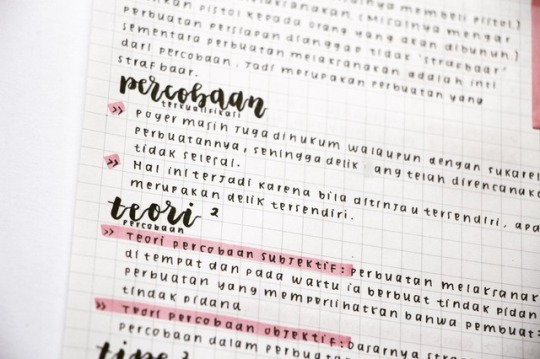 membeli pistol.)
pistol kepada orang yang akan dibunuh)
perbuatan persiapan dianggap tidak 'strafbaar'
sementara perbuatan melaksanakan adalah inti
dari percobaan, jadi merupakan perbuatan yang
strafbaar.
percobaan
terkualifikasi
» poger masih juga dihukum walaupun dengan sukarel
perbuatannya, sehingga delik ang telah direncanak
tidak selesai.
» Hal ini terjadi karena bila ditinjau tersendiri, apa
merupakan delik tersendiri.
teori²
percobaan
» Teori percobaan subjektif: perbuatan melaksanak
di tempat dan pada waktu ia berbuat tindak pidan
perbuatan yang memperlihatkan bahwa pembuat
tindak pidana
» Teori percobaan objektif: Dasarnya stra
percobaan dalam perbuata
tipe²